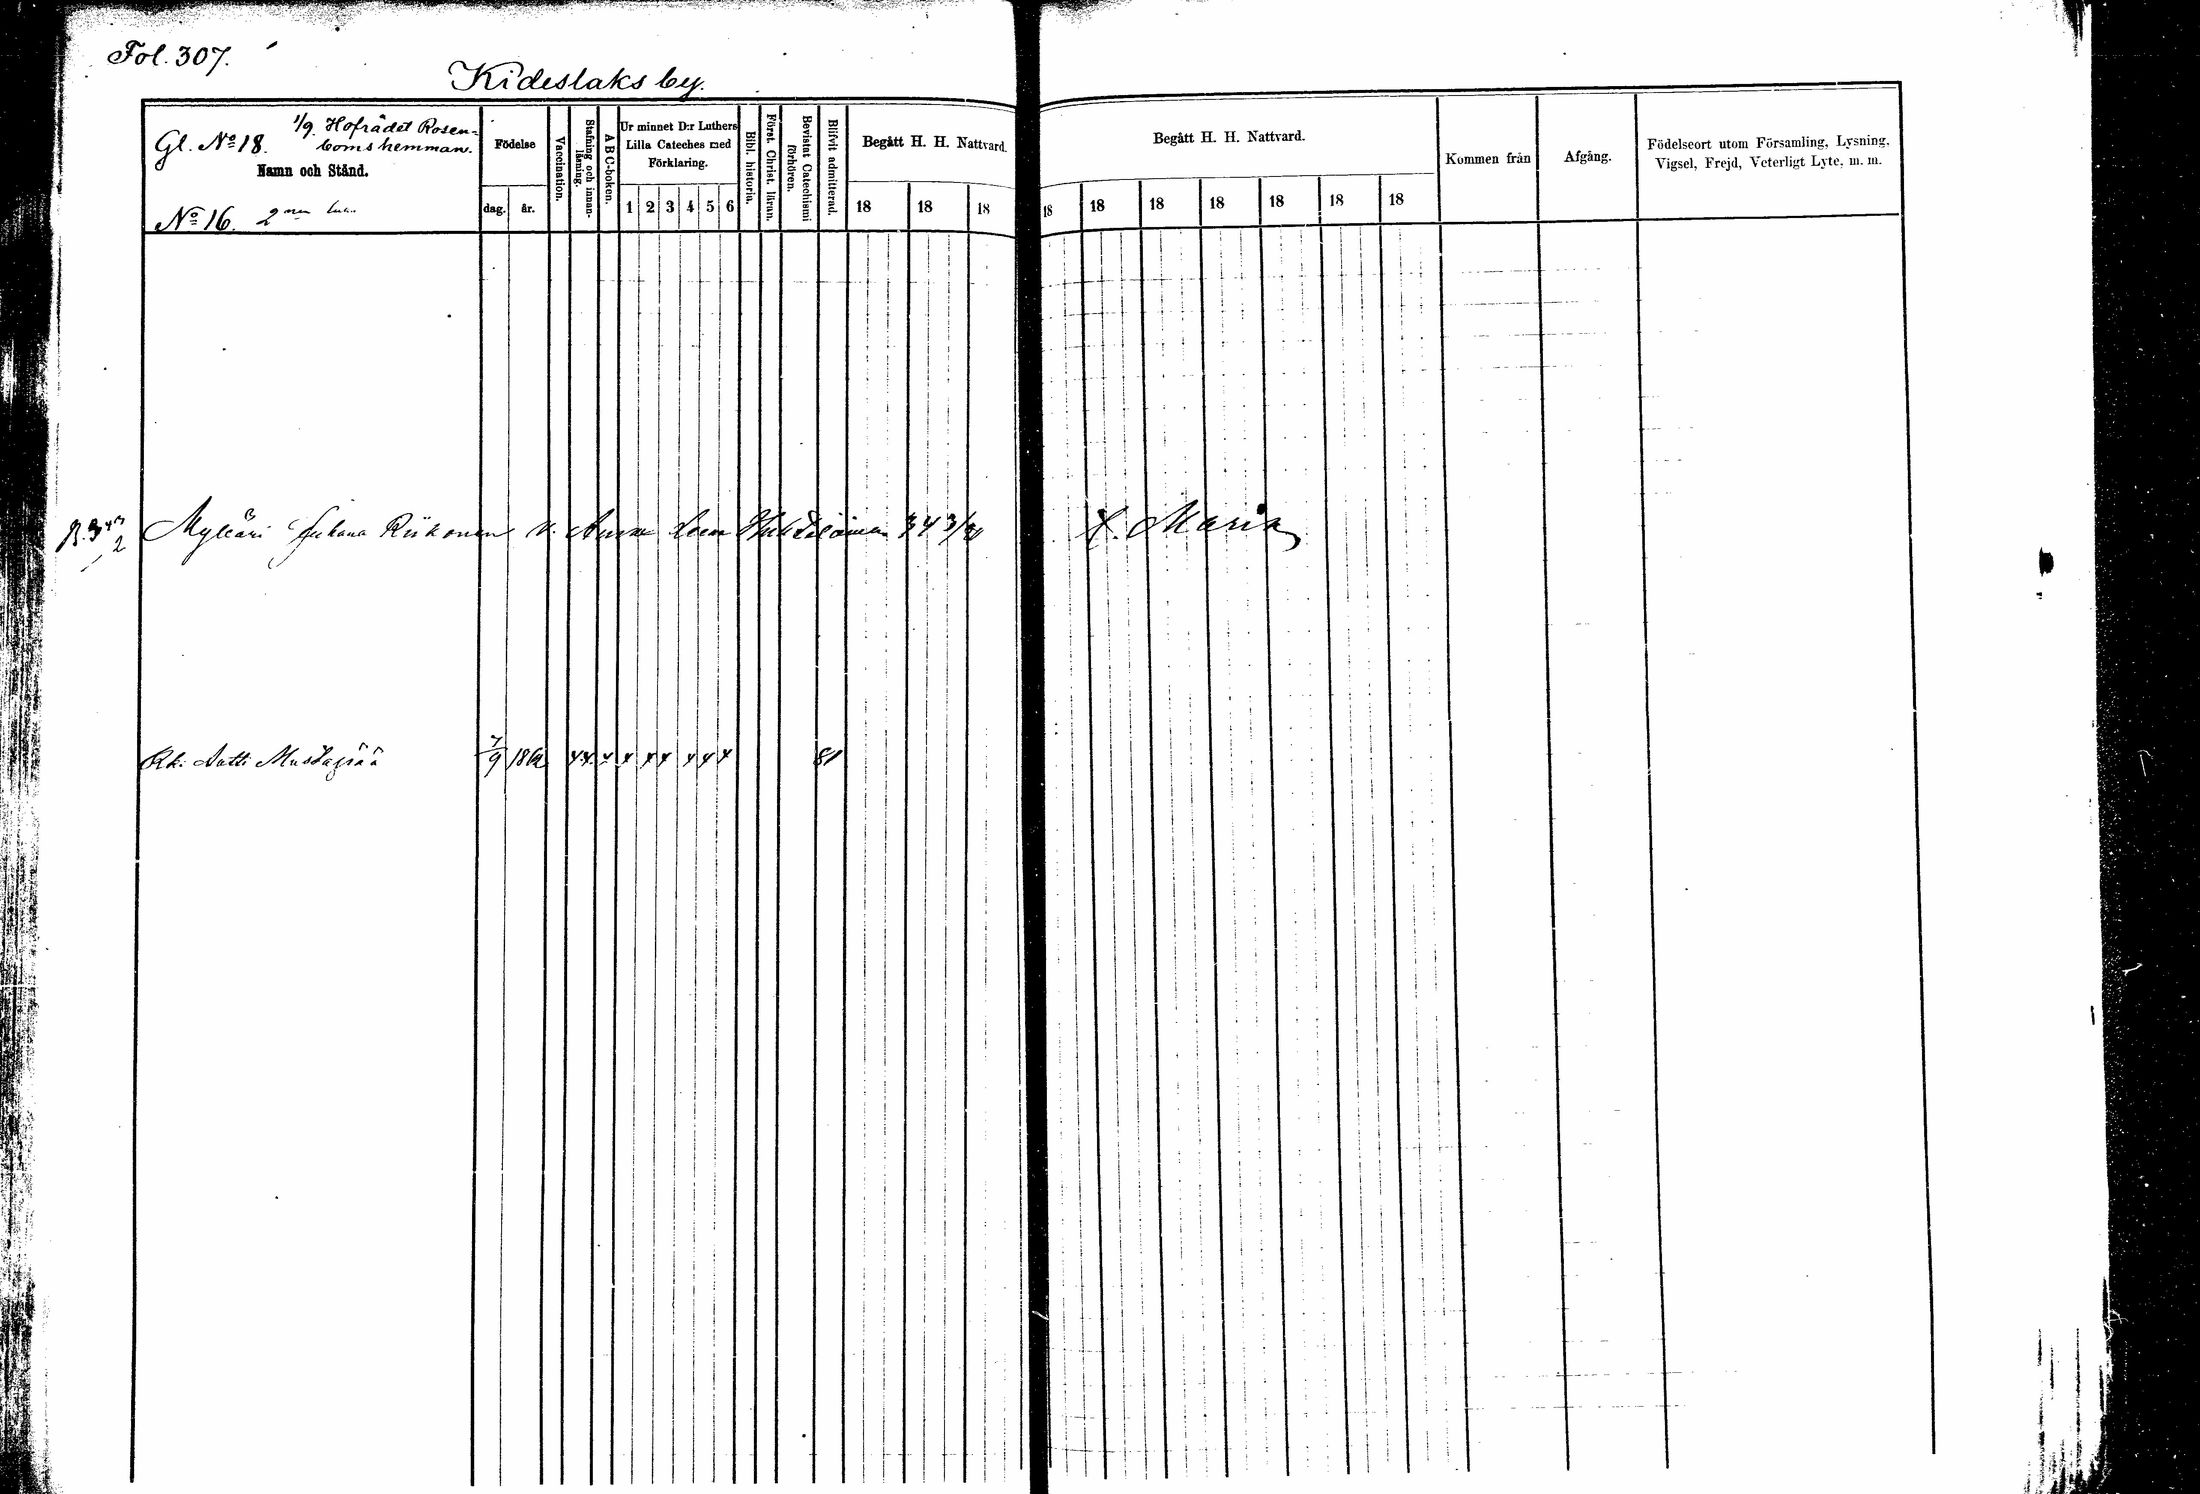 Fol. 307.
Kideslaks by.
Gl. No 18. 1/9. Hofrådet Rosen-
boms hemman.
Namn och Stånd.
No 16. 2
Födelse
dag. år.
Vaccination.
Stafning och innan-
läsning.
A B C-boken.
Ur minnet D:r Luthers
Lilla Cateches med
Förklaring.
1 2 3 4 5 6
Bibl. historia.
Först. Christ. läran.
Bevistat Catechismi
förhören.
Blifvit admitterad.
Begått H. H. Nattvard.
18 18 18
Begått H. H. Nattvard.
18 18 18 18 18 18 18
Kommen från
Afgång.
Födelseort utom Församling, Lysning,
Vigsel, Frejd, Veterligt Lyte, m. m.
Mylläri Juhana Riikonen v. Anna
Maria
Antti Mustapää 7/9 1862 81